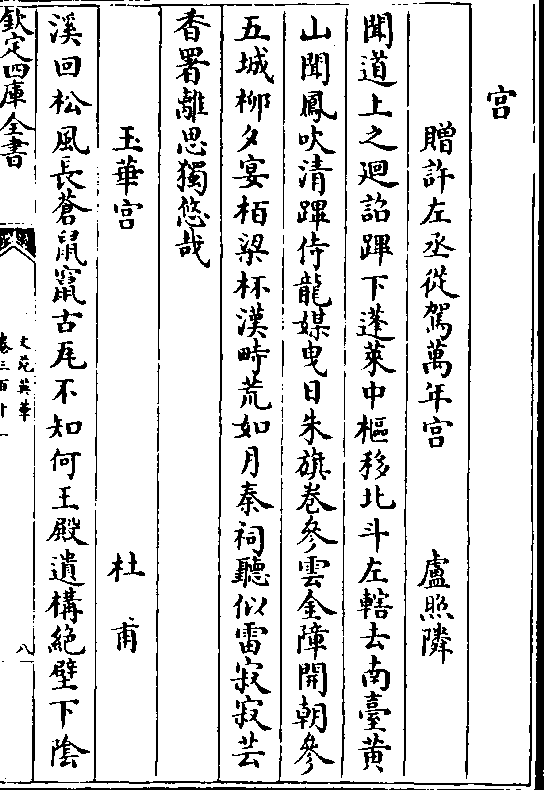 宫
贈許左丞從駕萬年宫 盧照隣
聞道上之廻詔蹕下蓬萊中樞移北斗左轄去南臺黄
山聞鳳吹清蹕侍龍媒曵日朱旗卷參雲金障開朝參
五城柳夕宴栢梁杯漢畤荒如月秦祠聽似雷寂寂芸
香署離思獨悠哉
玉華宫 杜甫
溪回松風長蒼鼠竄古瓦不知何王殿遺構絶壁下陰
欽定四庫全書
文苑英華
卷三百十一
八